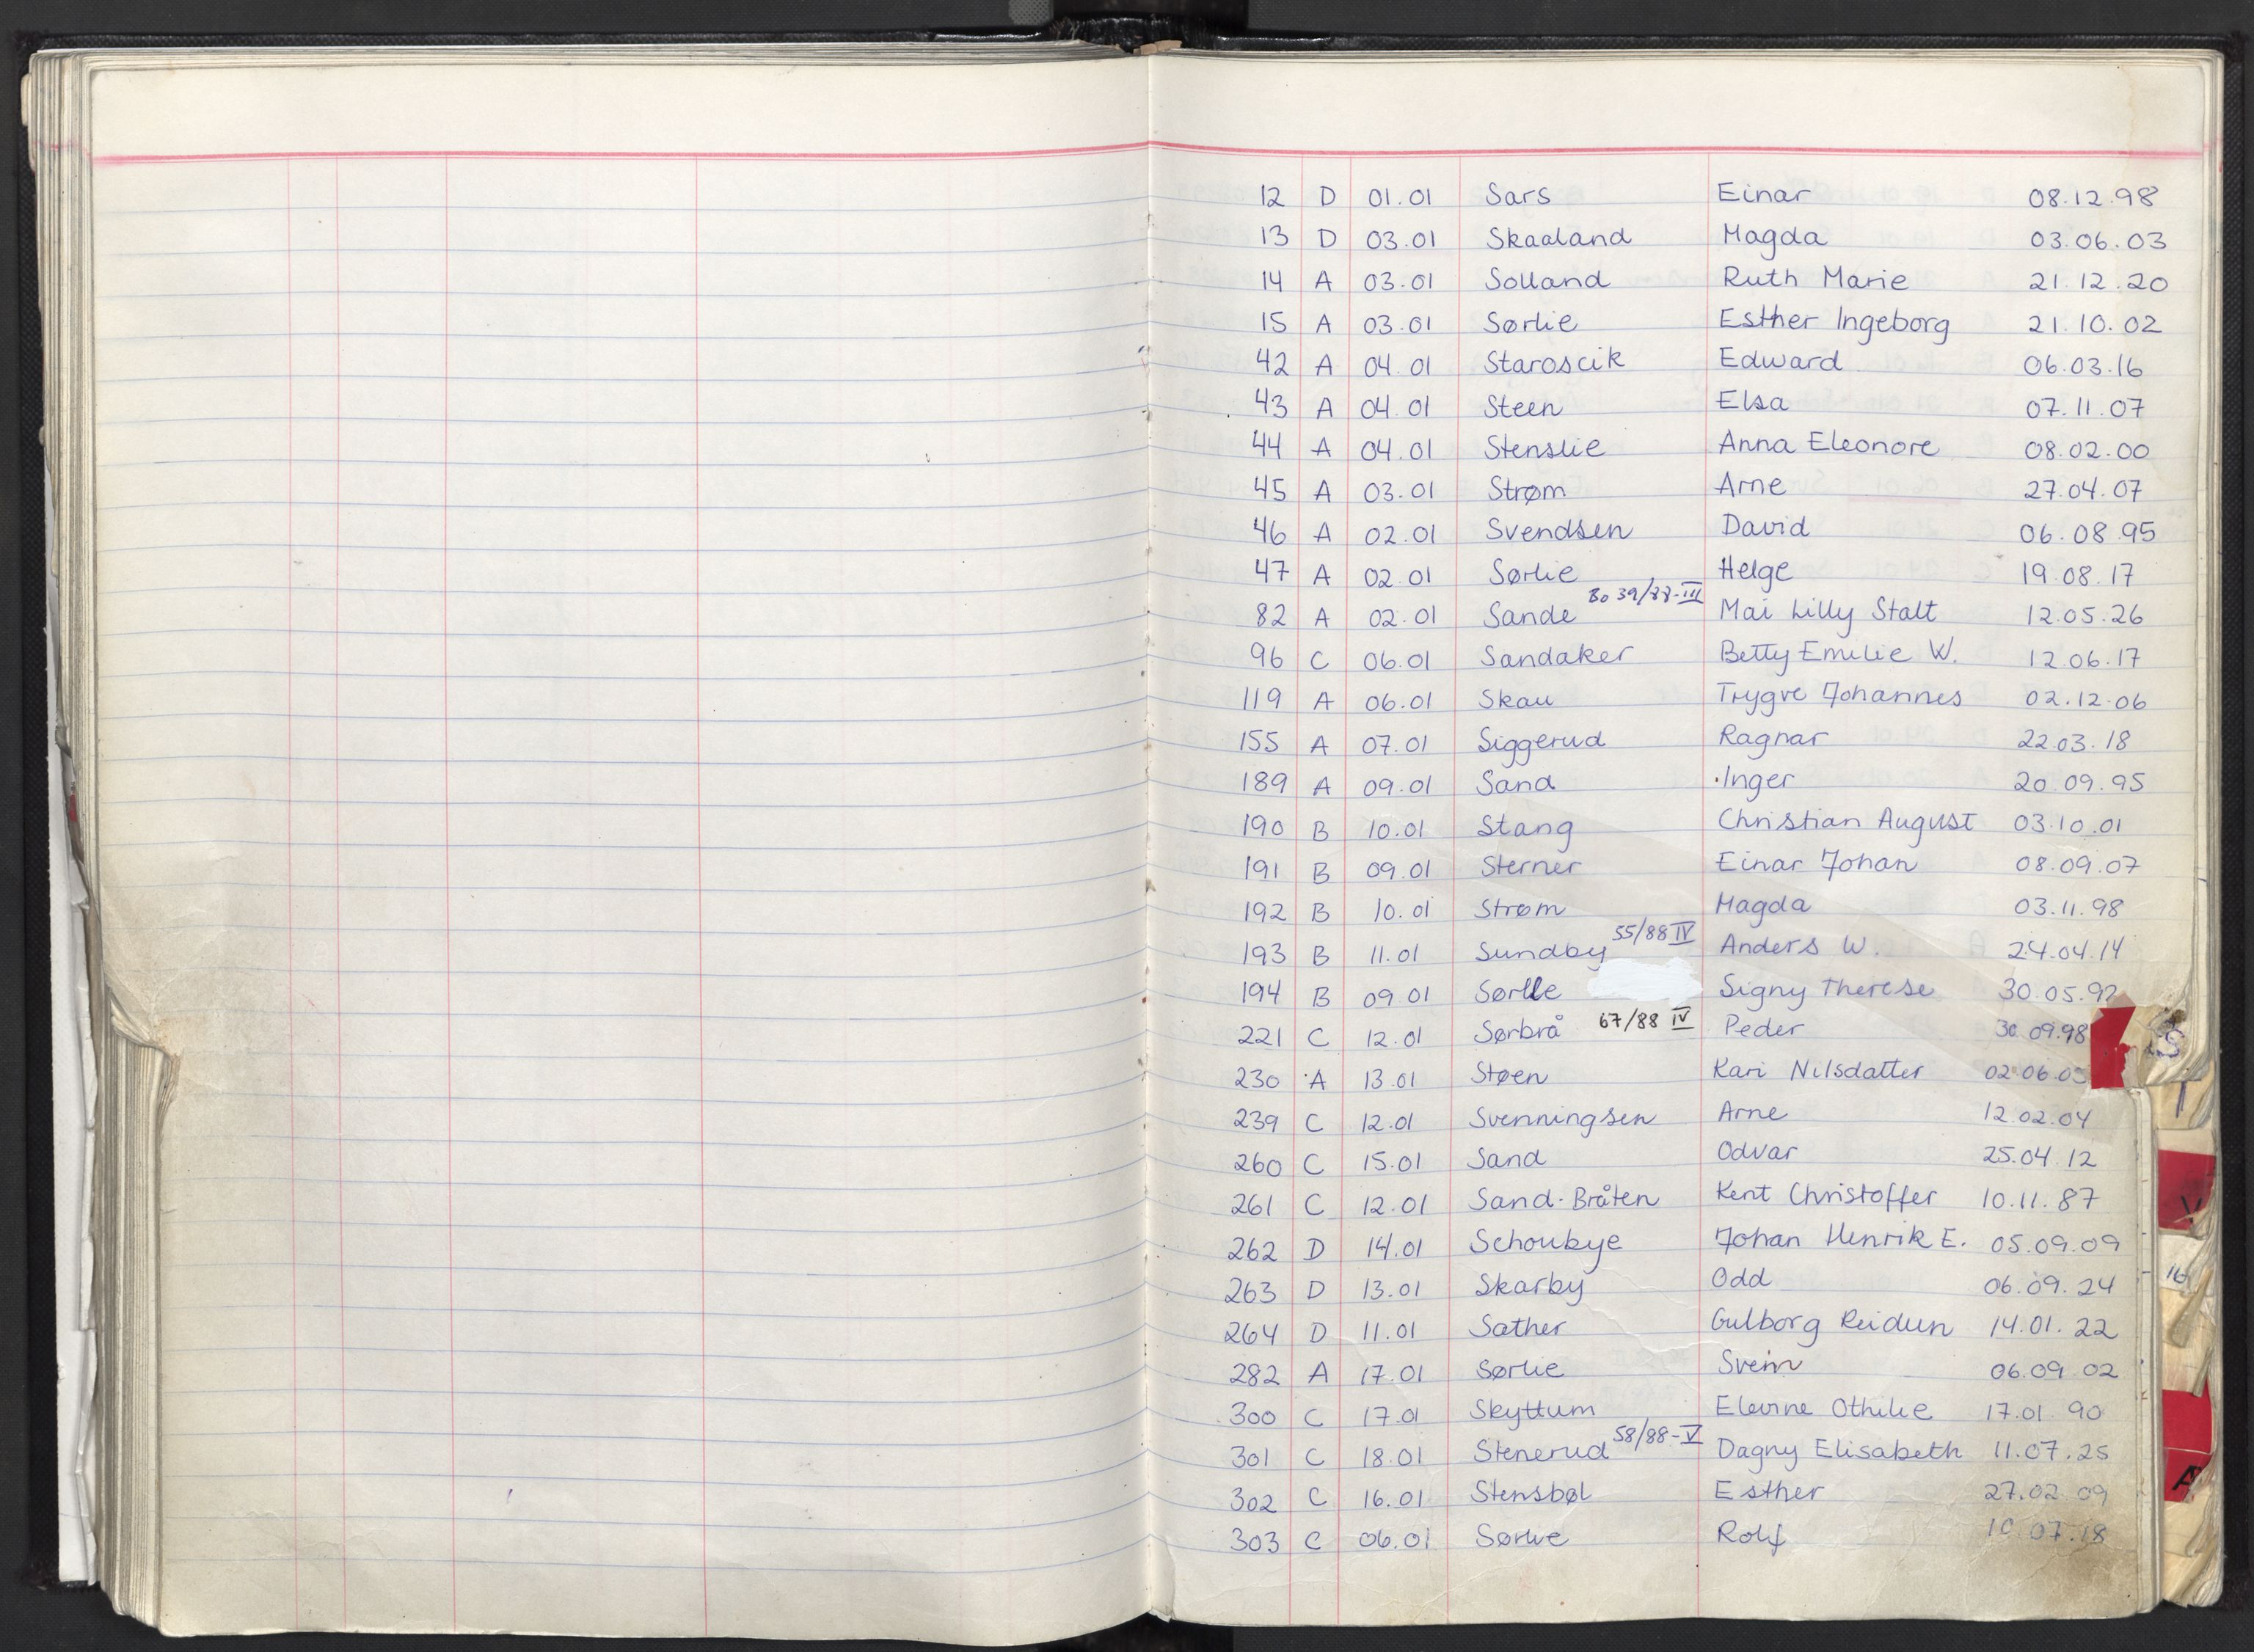 12 D 01.01 Sars Einar 08.12.98
13 D 03.01 Skaaland Magda 03.06.03
14 A 03.01 Solland Ruth Marie 21.12.20
15 A 03.01 Sørlie Esther Ingeborg 21.10.02
42 A 04.01 Staroscik Edward 06.03.16
43 A 04.01 Steen Elsa 07.11.07
44 A 04.01 Stenslie Anna Eleonore 08.02.00
45 A 03.01 Strøm Arne 27.04.07
46 A 02.01 Svendsen David 06.08.95
47 A 02.01 Sørlie Helge 19.08.17
82 A 02.01 Sande Bo 39/88-III Mai Lilly Stalt 12.05.26
96 C 06.01 Sandaker Betty Emilie W. 12.06.17
119 A 06.01 Skau Trygve Johannes 02.12.06
155 A 07.01 Siggerud Ragnar 22.03.18
189 A 09.01 Sand Inger 20.09.95
190 B 10.01 Stang Christian August 03.10.01
191 B 09.01 Sterner Einar Johan 08.09.07
192 B 10.01 Strøm Magda 03.11.98
193 B 11.01 Sundby 55/88 IV Anders W. 24.04.14
194 B 09.01 Signy Therese 30.05.92
221 C 12.01 Sørbrå 67/88 IV Peder 30.09.98
230 A 13.01 Støen Kari Nilsdatter 02.06.
239 C 12.01 Svenningsen Arne 12.02.04
260 C 15.01 Sand Odvar 25.04.12
261 C 12.01 Sand-Bråten Kent Christoffer 10.11.87
262 D 14.01 Schoubye Johan Henrik E. 05.09.09
263 D 13.01 Skarby Odd 06.09.24
264 D 11.01 Sæther Gulborg Reidun 14.01.22
282 A 17.01 Sørlie Svein 06.09.02
300 C 17.01 Skyttum Elevine Othilie 17.01.90
301 C 18.01 Stenerud 58/88-V Dagny Elisabeth 11.07.25
302 C 16.01 Stensbøl Esther 27.02.09
303 C 06.01 Sørlie Rolf 10.07.18
S
T
V
A